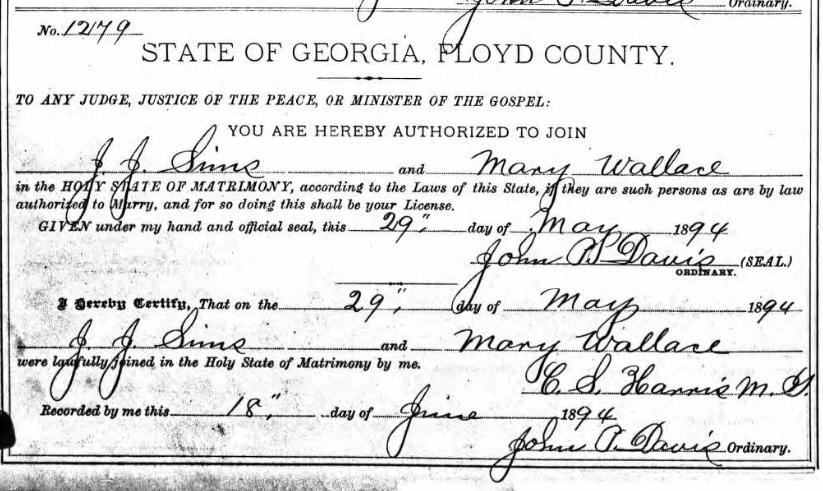 John P. Davis Ordinary.
No. 1279
STATE OF GEORGIA, FLOYD COUNTY.
TO ANY JUDGE, JUSTICE OF THE PEACE, OR MINISTER OF THE GOSPEL:
YOU ARE HEREBY AUTHORIZED TO JOIN
J. J. Sims and Mary Wallace
in the HOLY STATE OF MATRIMONY, according to the Laws of this State, if they are such persons as are by law
authorized to Marry, and for so doing this shall be your License.
GIVEN under my hand and official seal, this 29" day of May 1894
John P. Davis (SEAL.)
ORDINARY.
I Hereby Certify, That on the 29" day of May 1894
J. J. Sims and Mary Wallace
were lawfully joined in the Holy State of Matrimony by me.
C. S. Harris M. G.
Recorded by me this 18" day of June 1894
John P. Davis Ordinary.